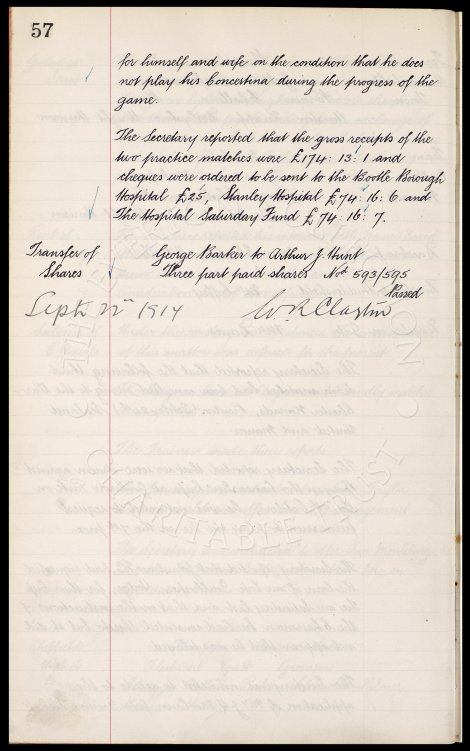 57
for himself and wife on the condition that he does
not play his Concertina during the progress of the
game.
The Secretary reported that the gross receipts of the
two practice matches were £174: 13: 1 and
cheques were ordered to be sent to the Bootle Borough
Hospital £25, Stanley Hospital £74: 16: 6 and
The Hospital Saturday Fund £74: 16: 7.
Transfer of
Shares
George Barker to Arthur J. Hunt
Three part paid shares Nos 593/595
Passed
Sept 22nd 1914
W. R. Clayton
CHARITABLE TRUST